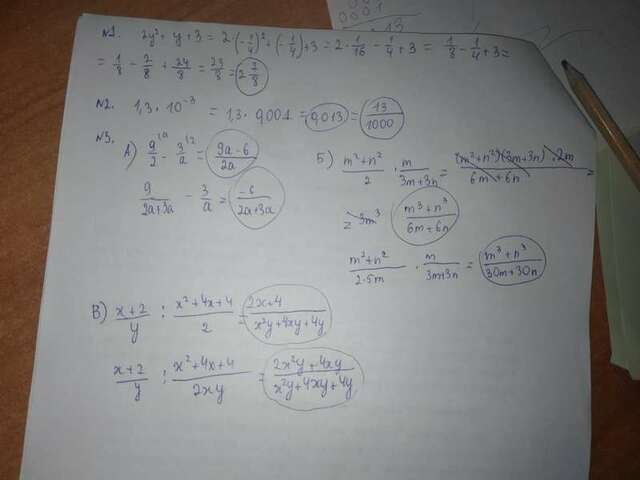 №1. 2y²+y+3 = 2·(-1/4)²+(-1/4)+3 = 2·1/16 - 1/4 + 3 = 1/8 - 1/4 + 3 =
= 1/8 - 2/8 + 24/8 = 23/8 = 2 7/8
№2. 1,3·10⁻³ = 1,3·0,001 = 0,013 = 13/1000
№3. А) 9/2 - 3/a = (9a-6)/2a
9/(2a+3a) - 3/a = -6/(2a+3a)
Б) (m²+n²)/2 · m/(3m+3n) = (m²+n²)(3m+3n)·2m/(6m+6n) =
= 3m³ (m³+n³)/(6m+6n)
(m²+n²)/(2·5m) · m/(3m+3n) = (m³+n³)/(30m+30n)
В) (x+2)/y : (x²+4x+4)/2 = (2x+4)/(x²y+4xy+4y)
(x+2)/y : (x²+4x+4)/2xy = (2x²y+4xy)/(x²y+4xy+4y)